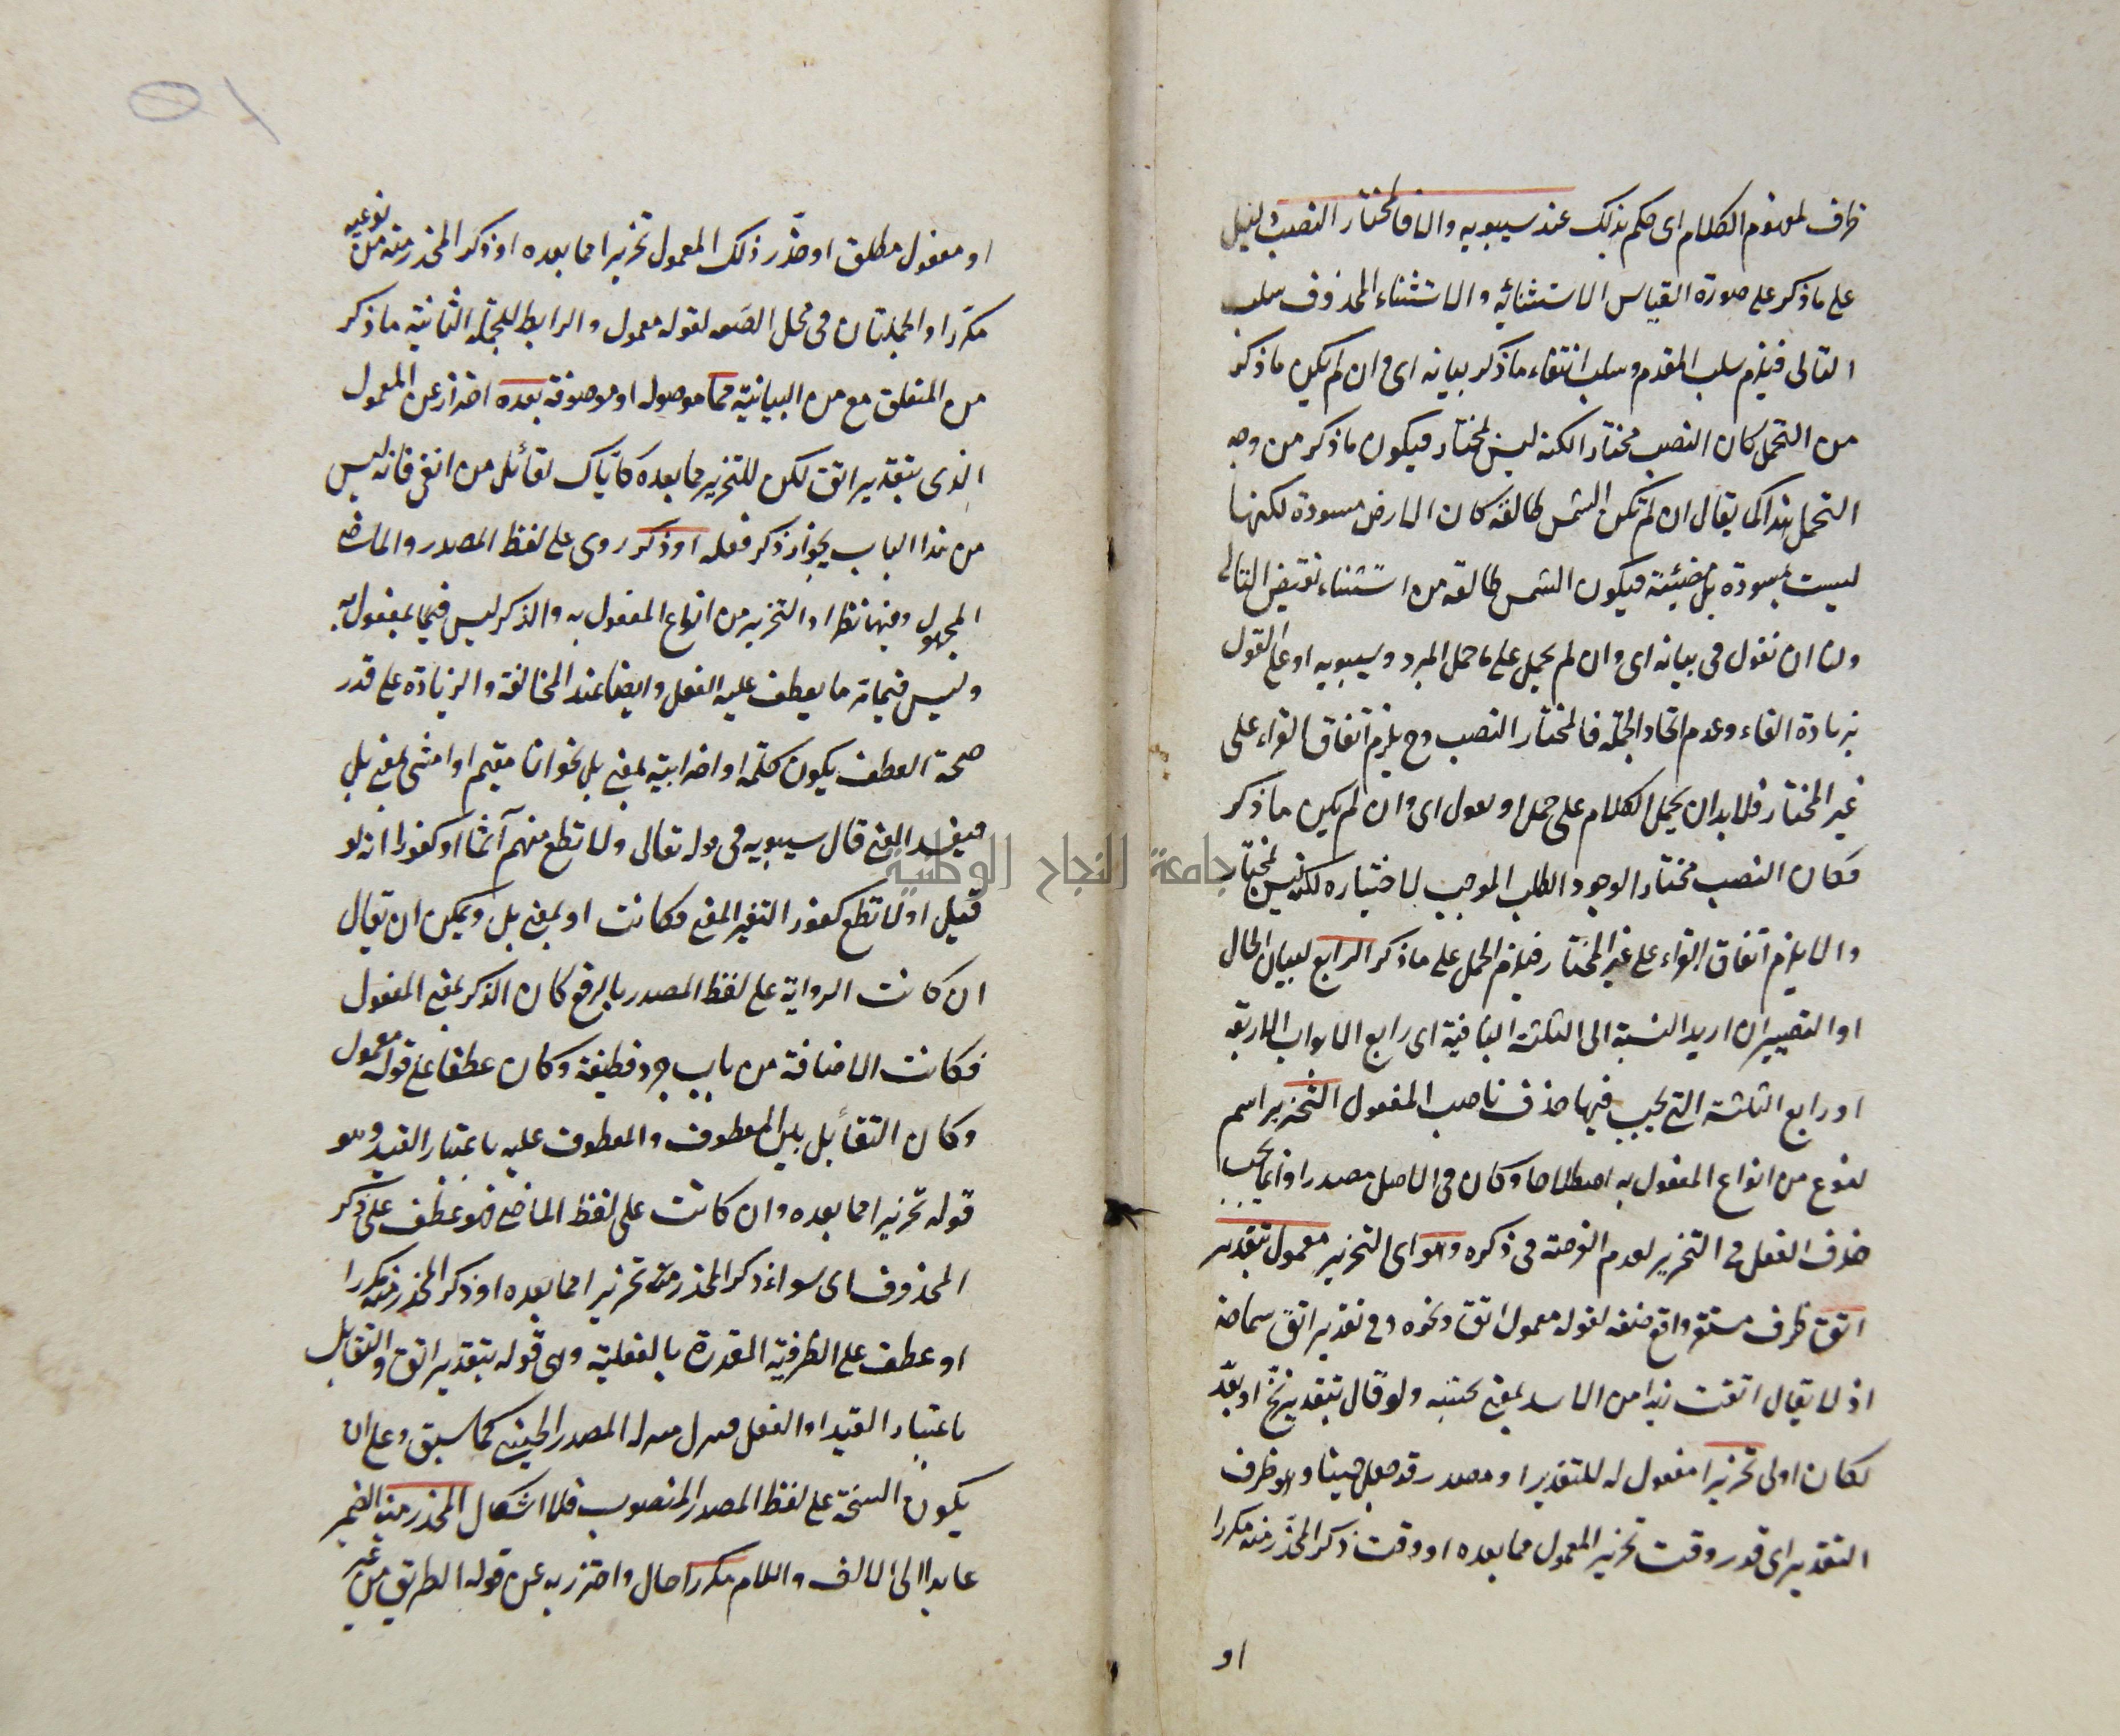 ظرف لمفهوم الكلام اى حكم بذلك عند سيبويه والا فالمختار النصب دليل
على ما ذكر على صورة القياس الاستثنائية والاستثناء المحذوف سلب
التالى فيلزم سلب المقدم وسلب انتفاء ما ذكر بيانه اى وان لم يكن ما ذكر
من التحمل كان النصب مختارا لكنه ليس بمختار فيكون ما ذكر من وجه
التحمل هذا كما يقال ان لم تكن الشمس طالعة كان الارض مسودة لكنها
ليست بمسودة بل مضيئة فيكون الشمس طالعة من استثناء نقيض التالى
ولنا ان نقول فى بيانه اى وان لم يحمل على ما حمل المبرد وسيبويه او على القول
بزيادة الفاء وعدم اتحاد الجملة فالمختار النصب وح يلزم اتفاق القراء على
غير المختار فلا بد ان يحمل الكلام على حمل او اى وان لم يكن ما ذكر
فكان النصب مختارا لوجود الطلب الموجب لاختياره لكنه ليس بمختار
والا يلزم اتفاق القراء على غير المختار فيلزم الحمل على ما ذكر الرابع لبيان الحال
او التصيير ان اريد النسبة الى الثلثة الباقية اى رابع الابواب الاربعة
او رابع الثلثة التى يجب فيها حذف ناصب المفعول التحذير اسم
لنوع من انواع المفعول به اصطلاحا وكان فى الاصل مصدرا وانما يجب
حذف الفعل فى التحذير لعدم الفرصة فى ذكره وهو اى التحذير معمول بتقدير
اتق ظرف مستقر واقع صفة لقوله معمول اتق ونحوه وفى تقدير اتق سماحة
اذ لا يقال اتقت زيدا من الاسد بمعنى جنبته ولو قال بتقدير نح او بعد
لكان اولى تحذيرا مفعول له للتقدير او مصدر قد جعل حينا وهو ظرف
التقدير اى قدر وقت تحذير المعمول مما بعده او وقت ذكر المحذر منه مكررا
او
او مفعول مطلق او حذر ذلك المعمول تحذيرا مما بعده او ذكر المحذر منه من نوعيه
مكررا والجملتان فى محل الصفة لقوله معمول والرابط للجملة الثانية ما ذكر
من المتعلق مع من البيانية مما موصولة او موصوفة بعده احتراز عن المعمول
الذى بتقدير اتق لكن للتحذير مما بعده كاياك لقائل من اتقى فانه ليس
من هذا الباب يجوز ذكر فعله او ذكر روى على لفظ المصدر والماضى
المجهول وفيهما نظر اذ التحذير من انواع المفعول به والذكر ليس فيها بمفعول به
وليس فيما ثمة ما يعطف عليه الفعل وايضا عند المخالفة والزيادة على قدر
صحة العطف يكون كلمة او اضرابية بمعنى بل نحو انا مقيم او امشى بمعنى بل
فيفسد المعنى قال سيبويه فى قوله تعالى ولا تطع منهم آثما او كفورا انه لو
قيل او لا تطع كفورا لتغير المعنى فكانت او بمعنى بل ويمكن ان يقال
ان كانت الرواية على لفظ المصدر بالرفع كان الذكر بمعنى المفعول
فكانت الاضافة من باب جرد قطيفة وكان عطفا على قوله معمول
وكان التقابل بين المعطوف والمعطوف عليه باعتبار القيد وهو
قوله تحذيرا مما بعده وان كانت على لفظ الماضى فهو عطف على ذكر
المحذوف اى سواء ذكر المحذر منه تحذيرا مما بعده او ذكر المحذر منه مكررا
او عطف على الظرفية المقدرة بالفعلية وهى قوله بتقدير اتق والتقابل
باعتبار القيد او الفعل المصدر الحينى كما سبق وعلى ان
يكون النسخة على لفظ المصدر المنصوب فلا اشكال المحذر منه الضمير
عايد الى الالف واللام مكررا حال واحترز به عن قوله الطريق من غير
جامعة النجاح الوطنية